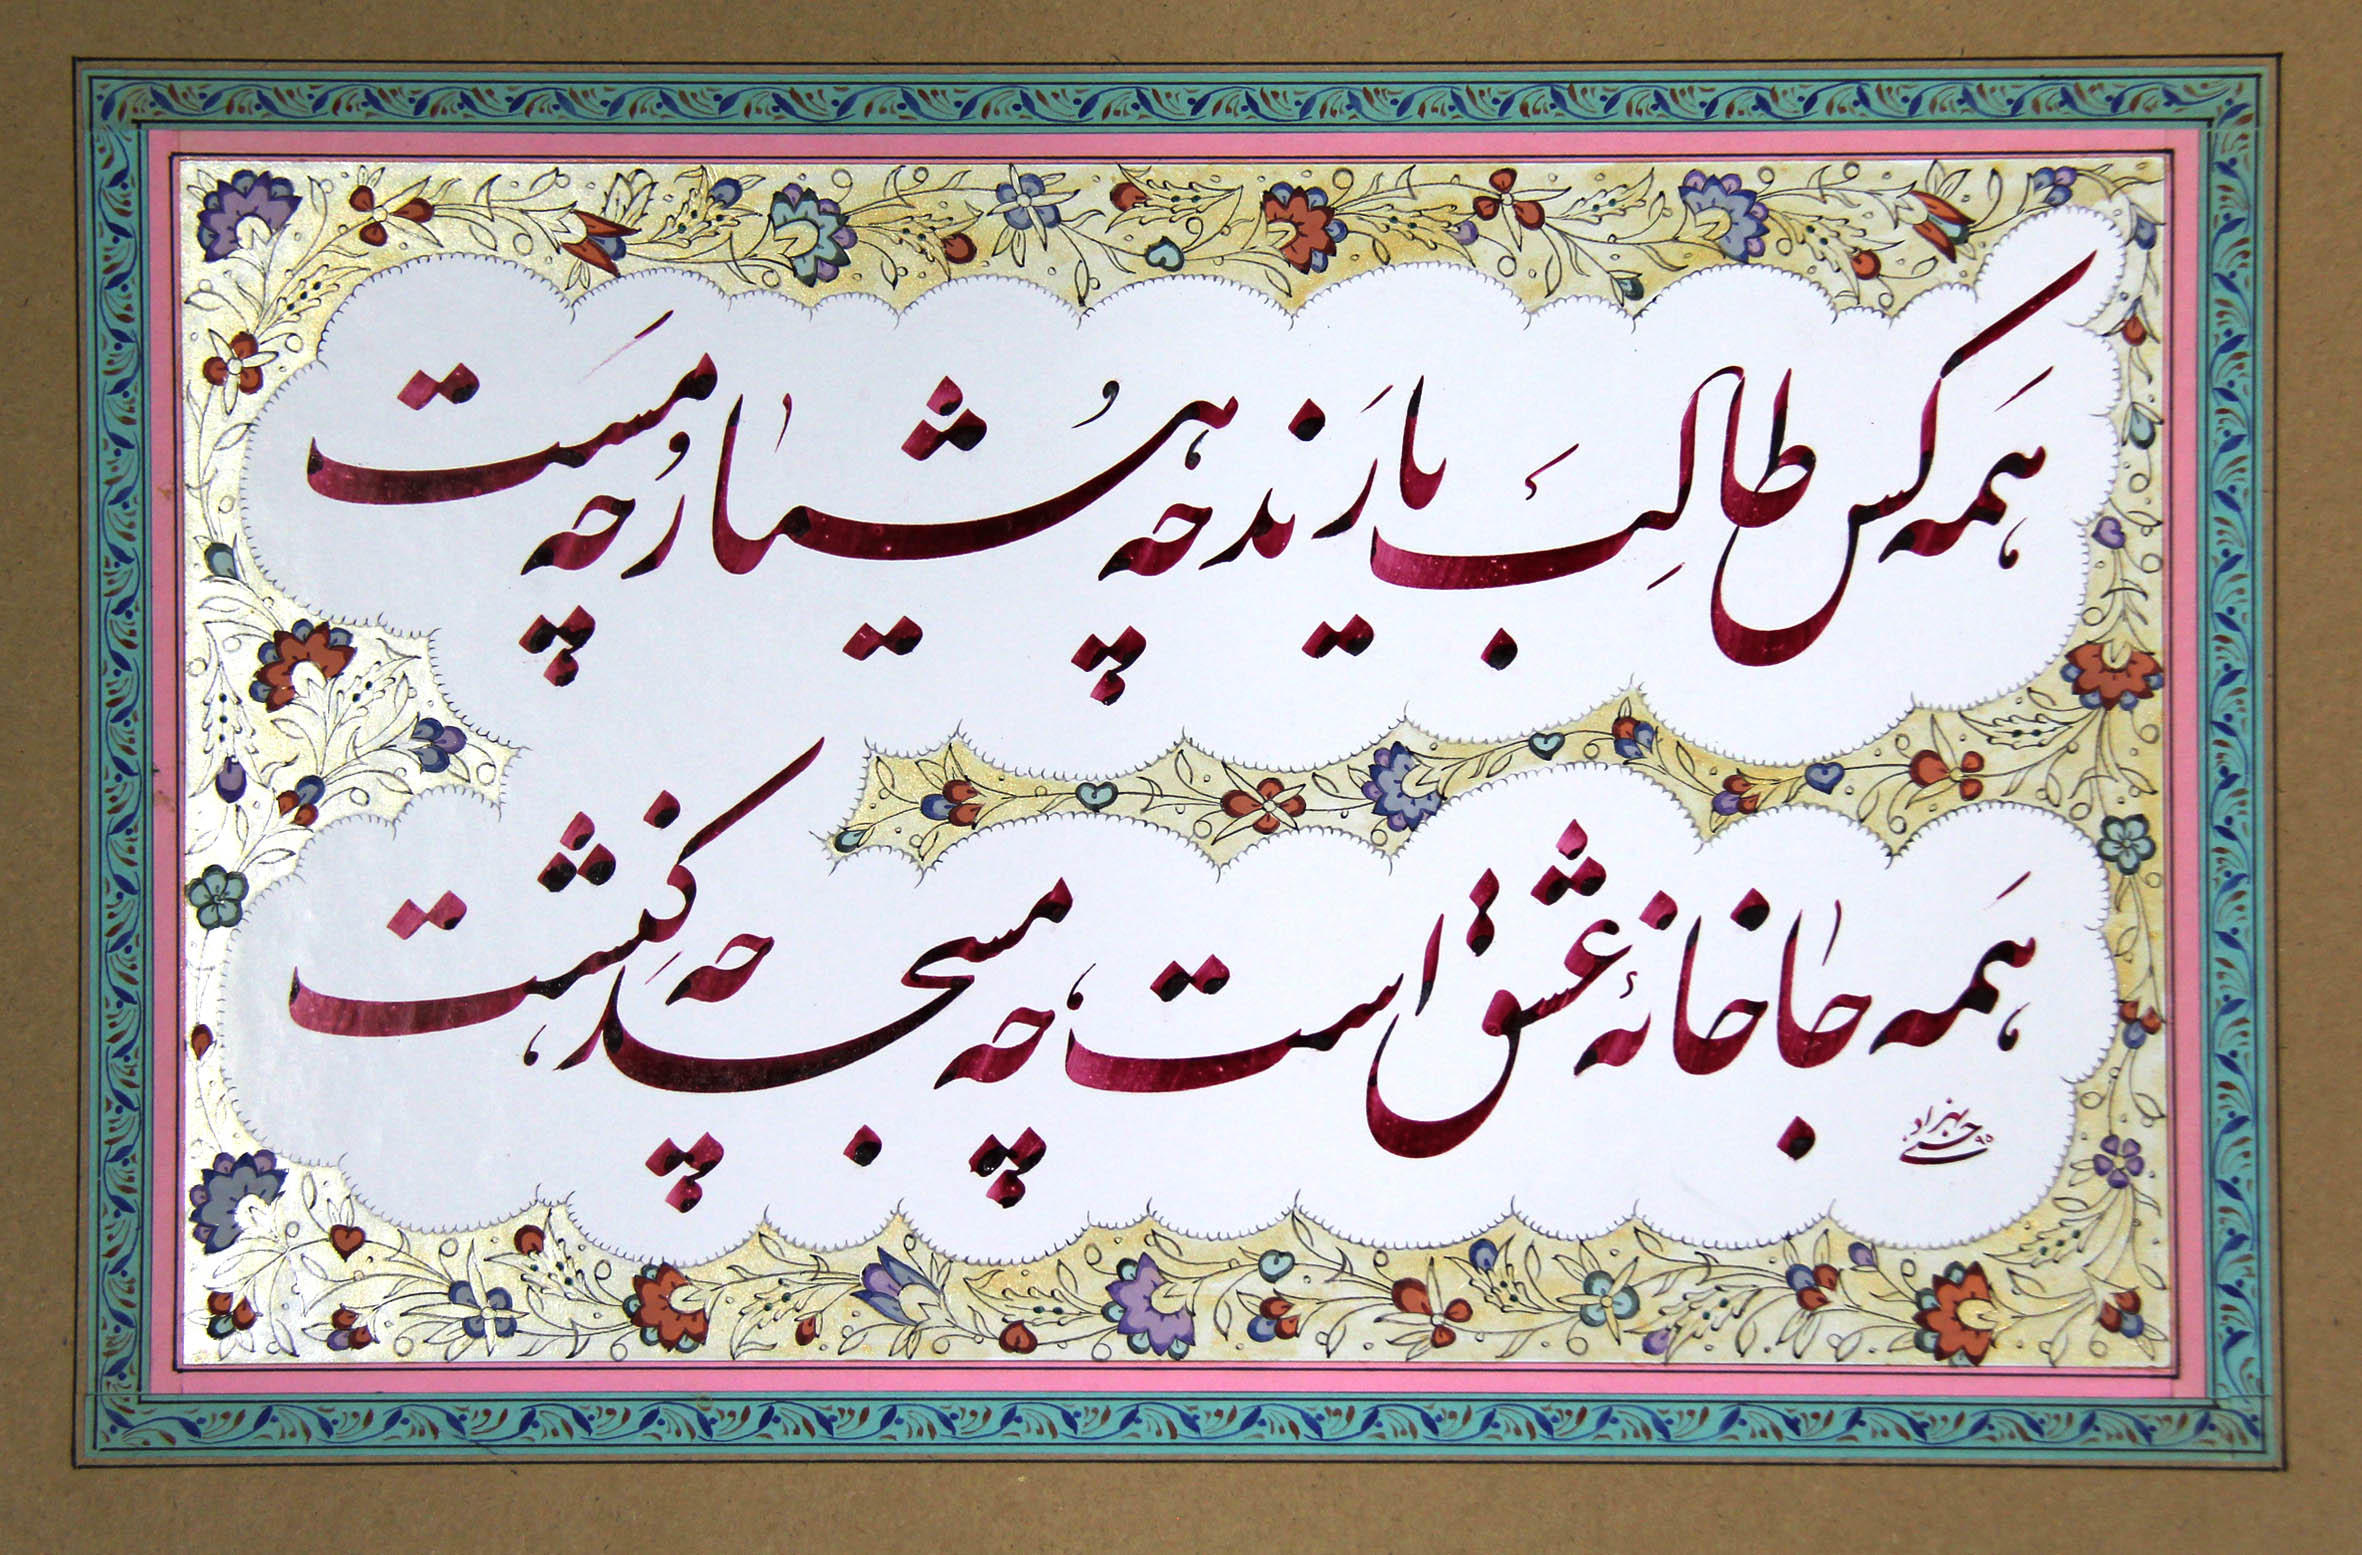 همه کس طالب یارند چه هُشیار و چه مست
همه جا خانهٔ عشق است، چه مسجد چه کنشت
بهزاد حسنی ۹۵